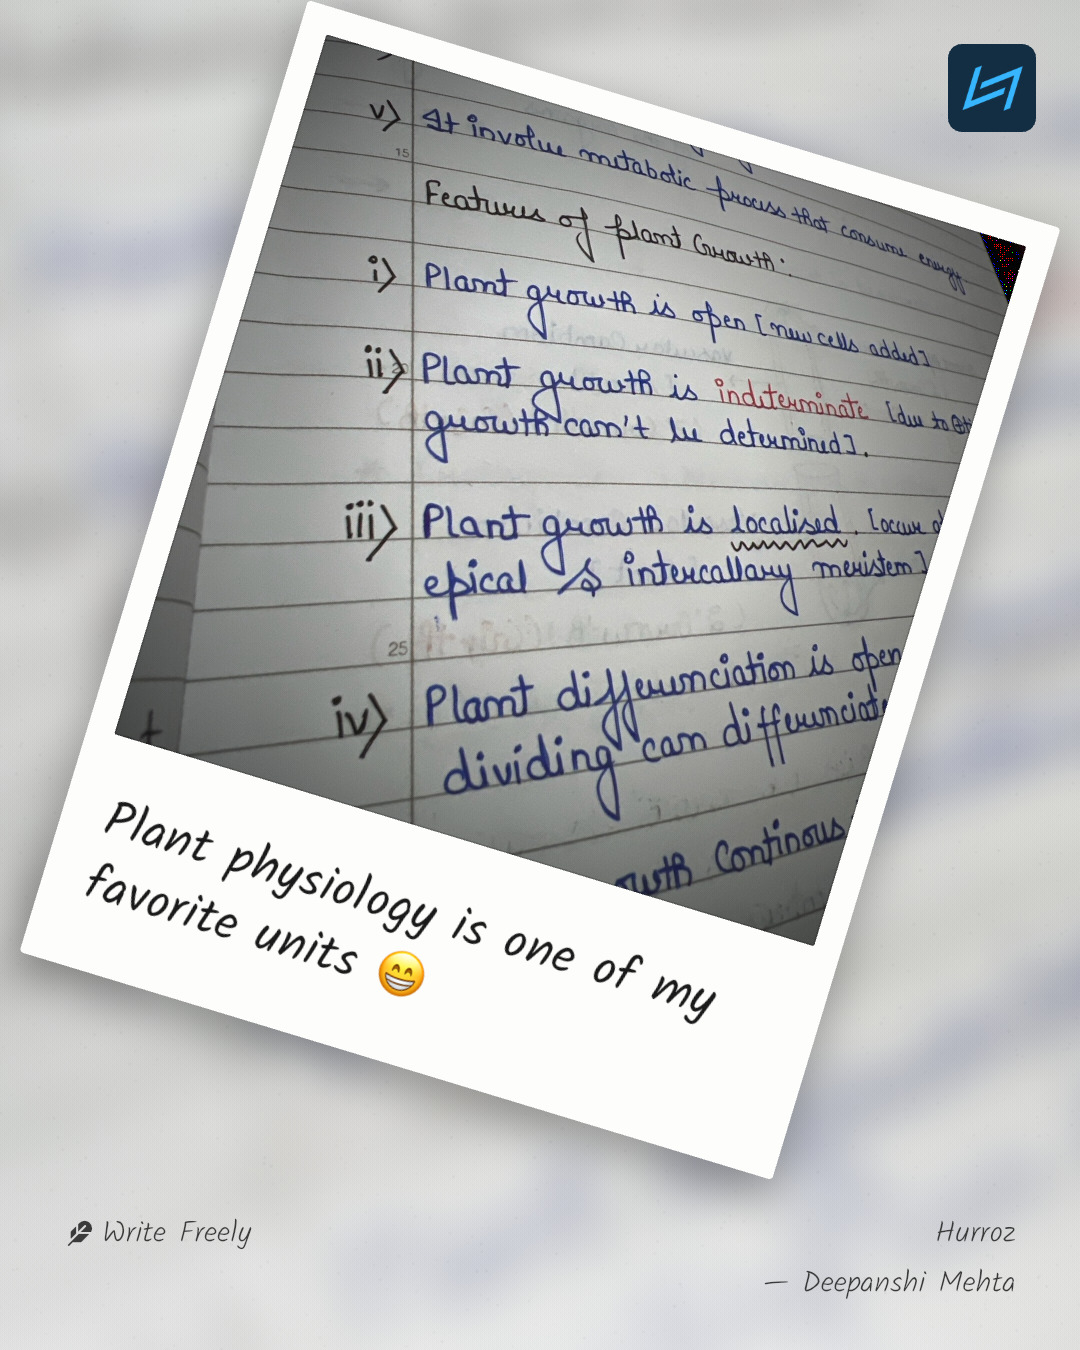 v) It involve metabolic process that consume energy
15
Features of plant Growth:
i) Plant growth is open [new cells added]
ii) Plant growth is indeterminate [due to
growth can't be determined].
iii) Plant growth is localised. [occur
epical & intercallary meristem]
25
iv) Plant differenciation is open
dividing can differenciate
owth Continous
Plant physiology is one of my
favorite units 😁
Write Freely
Hurroz
— Deepanshi Mehta